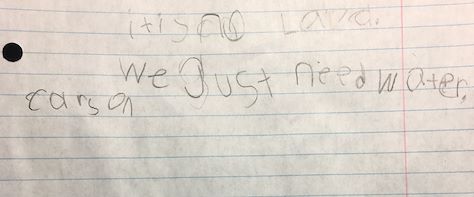 it is no Lava.
We Just need water.
carson